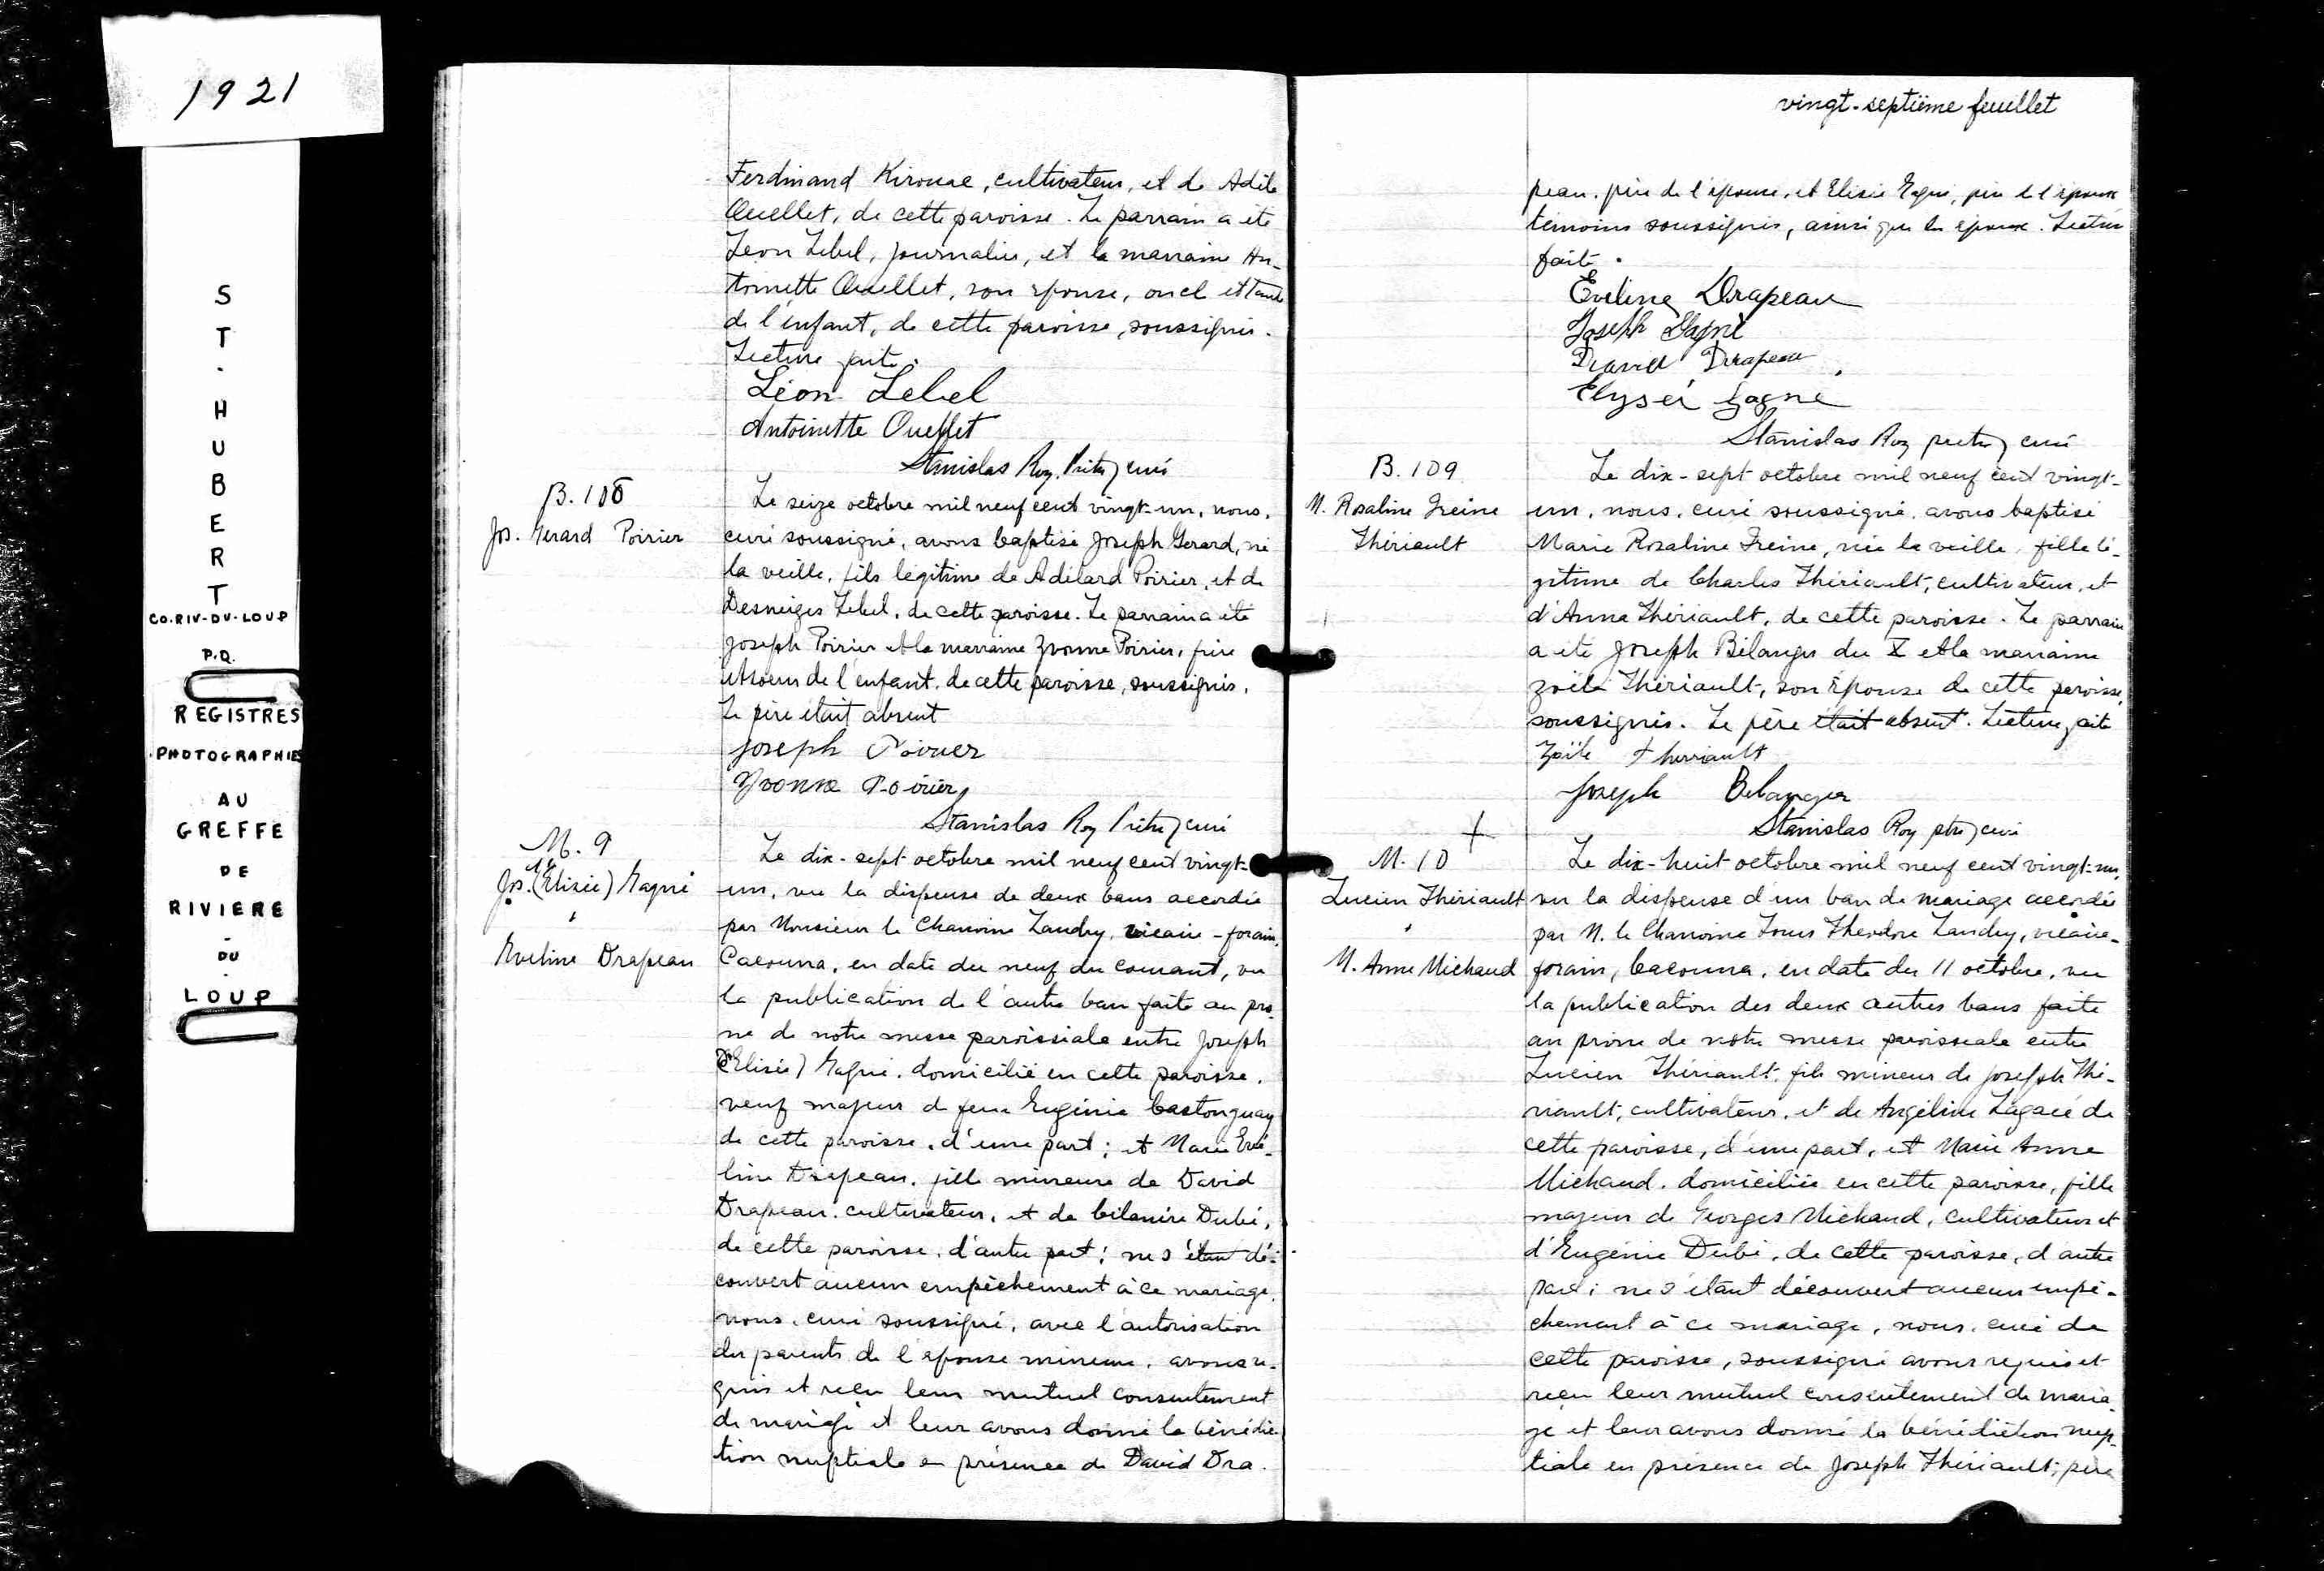 1921
ST. HUBERT
CO. RIV-DU-LOUP
P.Q.
REGISTRES
PHOTOGRAPHIES
AU
GREFFE
DE
RIVIERE
-
DU
-
LOUP
Ferdinand Kirouac, cultivateur, et de Adèle
Ouellet, de cette paroisse. Le parrain a été
Léon Lebel, journalier, et la marraine An-
toinette Ouellet, son épouse, oncle et tante
de l'enfant, de cette paroisse, soussignés.
Lecture faite.
Léon Lebel
Antoinette Ouellet
Stanislas Roy, Ptre, curé
B. 108
Jos. Gerard Poirier
Le seize octobre mil neuf cent vingt-un, nous,
curé soussigné, avons baptisé Joseph Gerard, né
la veille, fils légitime de Adélard Poirier, et de
Desneiges Lebel, de cette paroisse. Le parrain a été
Joseph Poirier et la marraine Yvonne Poirier, frère
et soeur de l'enfant, de cette paroisse, soussignés.
Le père était absent
Joseph Poirier
Yvonne Poirier
Stanislas Roy Ptre, curé
M. 9
Jos. (Elisée) Gagné
&
Eveline Drapeau
Le dix-sept octobre mil neuf cent vingt-
un, vu la dispense de deux bans accordée
par Monsieur le Chanoine Landry, vicaire-forain,
Cacouna, en date du neuf du courant, vu
la publication de l'autre ban faite au prô-
ne de notre messe paroissiale entre Joseph
(Elisée) Gagné, domicilié en cette paroisse,
veuf majeur de feue Eugénie Castonguay
de cette paroisse, d'une part; et Marie Evé-
line Drapeau, fille mineure de David
Drapeau, cultivateur, et de Cilanire Dubé,
de cette paroisse, d'autre part; ne s'étant dé-
couvert aucun empêchement à ce mariage,
nous, curé soussigné, avec l'autorisation
des parents de l'épouse mineure, avons re-
quis et reçu leur mutuel consentement
de mariage et leur avons donné la bénédic-
tion nuptiale en présence de David Dra-
vingt-septième feuillet
peau, père de l'épouse, et Elisée Gagné, père de l'époux
témoins soussignés, ainsi que les époux. Lecture
faite.
Eveline Drapeau
Joseph Gagné
David Drapeau
Elyseé Gagné
Stanislas Roy ptre, curé
B. 109
M. Rosaline Irèine
Thériault
Le dix-sept octobre mil neuf cent vingt-
un, nous, curé soussigné, avons baptisé
Marie Rosaline Irèine, née la veille, fille lé-
gitime de Charles Thériault, cultivateur, et
d'Anna Thériault, de cette paroisse. Le parrain
a été Joseph Bélanger du X et la marraine
Zoële Thériault, son épouse de cette paroisse,
soussignés. Le père était absent. Lecture faite
Zoële Therriault
Joseph Belanger
Stanislas Roy ptre, curé
M. 10
Lucien Thériault
&
M. Anne Michaud
Le dix-huit octobre mil neuf cent vingt-un,
vu la dispense d'un ban de mariage accordée
par M. le Chanoine Louis Théodore Landry, vicaire-
forain, Cacouna, en date du 11 octobre, vu
la publication des deux autres bans faite
au prône de notre messe paroissiale entre
Lucien Thériault, fils mineur de Joseph Thé-
riault, cultivateur, et de Angéline Lagacé de
cette paroisse, d'une part, et Marie Anne
Michaud, domiciliée en cette paroisse, fille
majeure de Georges Michaud, cultivateur et
d'Eugénie Dubé, de cette paroisse, d'autre
part; ne s'étant découvert aucun empê-
chement à ce mariage, nous, curé de
cette paroisse, soussigné avons requis et
reçu leur mutuel consentement de maria-
ge et leur avons donné la bénédiction nup-
tiale en présence de Joseph Thériault, père